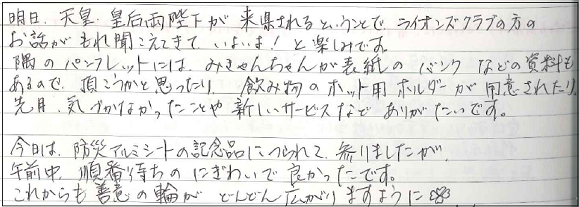 明日、天皇・皇后両陛下が来県されるということで ライオンズクラブの方の
お話がもれ聞こえてきて いよいよ！と楽しみです。
隅のパンフレットには、みきゃんちゃんが表紙の バンク などの資料も
あるので、頂こうかと思ったり、飲み物のホット用ホルダーが用意されたり、
先月、気づかなかったことや新しいサービスなど ありがたいです。
今日は、防災アルミシートの記念品につられて、参りましたが、
午前中、順番待ちのにぎわいで良かったです。
これからも善意の輪が どんどん広がりますように